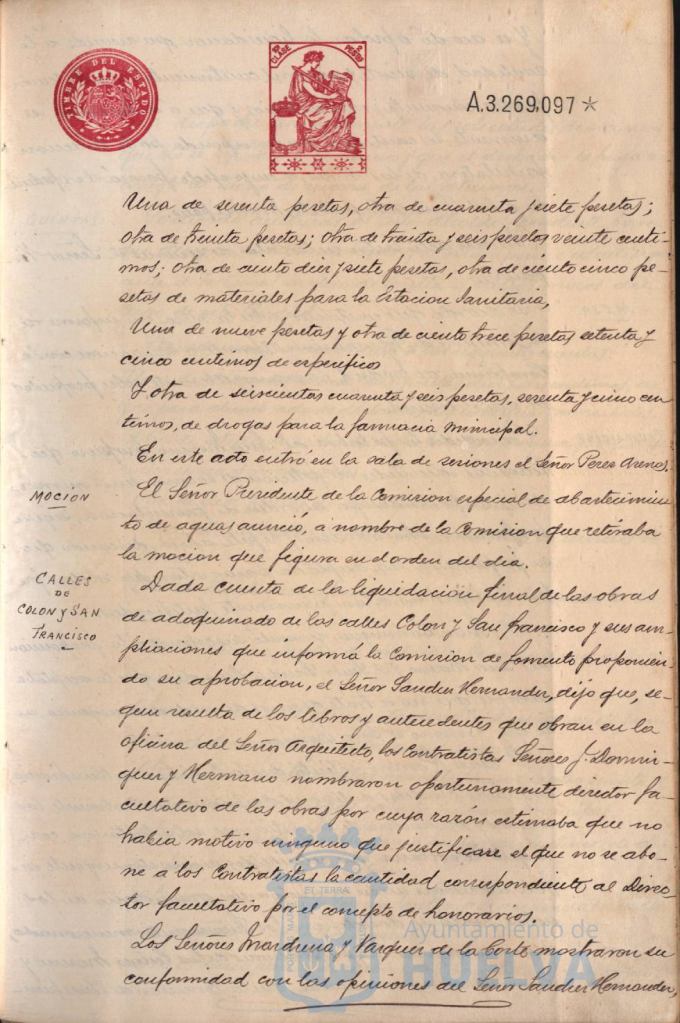 TIMBRE DEL ESTADO
CLASE 
PESETAS
A.3.269.097 *
Una de sesenta pesetas, otra de cuarenta y siete pesetas;
otra de treinta pesetas; otra de treinta y seis pesetas veinte centi-
mos; otra de ciento diez y siete pesetas, otra de ciento cinco pe-
setas de materiales para la Estacion Sanitaria,
Una de nueve pesetas y otra de ciento trece pesetas setenta y
cinco centimos de especifico
Y otra de seiscientas cuarenta y seis pesetas, sesenta y cinco cen
timos, de drogas para la farmacia municipal.
En este acto entró en la sala de sesiones el Señor Perez Arenas.
MOCIÓN
El Señor Presidente de la Comision especial de abastecimien
to de aguas anunció, á nombre de la Comision que retiraba
la mocion que figura en el orden del dia.
CALLES
DE
COLON Y SAN
FRANCISCO
Dada cuenta de la liquidación final de las obras
de adoquinado de las calles Colon y San Francisco y sus am-
pliaciones que informá la Comision de fomento proponien-
do su aprobacion, el Señor Sanchez Hernandez, dijo que, se-
gun resulta de los libros y antecedentes que obran en la
oficina del Señor Arquitecto, los Contratistas Señores J. Domin-
guez y Hermano nombraron oportunamente director fa-
cultativo de las obras por cuya razón estimaba que no
habia motivo ninguno que justificase el que no se abo-
ne á los Contratistas la cantidad correspondiente al Direc-
tor facultativo por el concepto de honorarios.
Los Señores Marchena y Vazquez de la Corte mostraron su
conformidad con las opiniones del Señor Sanchez Hernandez,
Ayuntamiento de
HUELVA